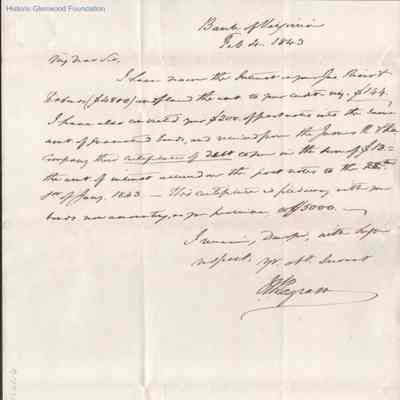 Historic Glenwood Foundation
Bank of Virginia
Feb. 4. 1843
My dear Sir,
I have drawn the Interest on your James River &
Bonds ($4800) and placed the amt to your credit, say $144.
I have also converted your $200 of post notes into the same
amt of bonds, and received from the James R & Ka
Company their certificate of debt to you in the sum of $13=
the amt of interest accrued on the post notes to the
1st of Jany. 1843 — This certificate is placed with your
bonds now amounting, as you perceive to $5000. —
I remain, Dear Sir, with high
respect, yr obt. Servant
Pegram